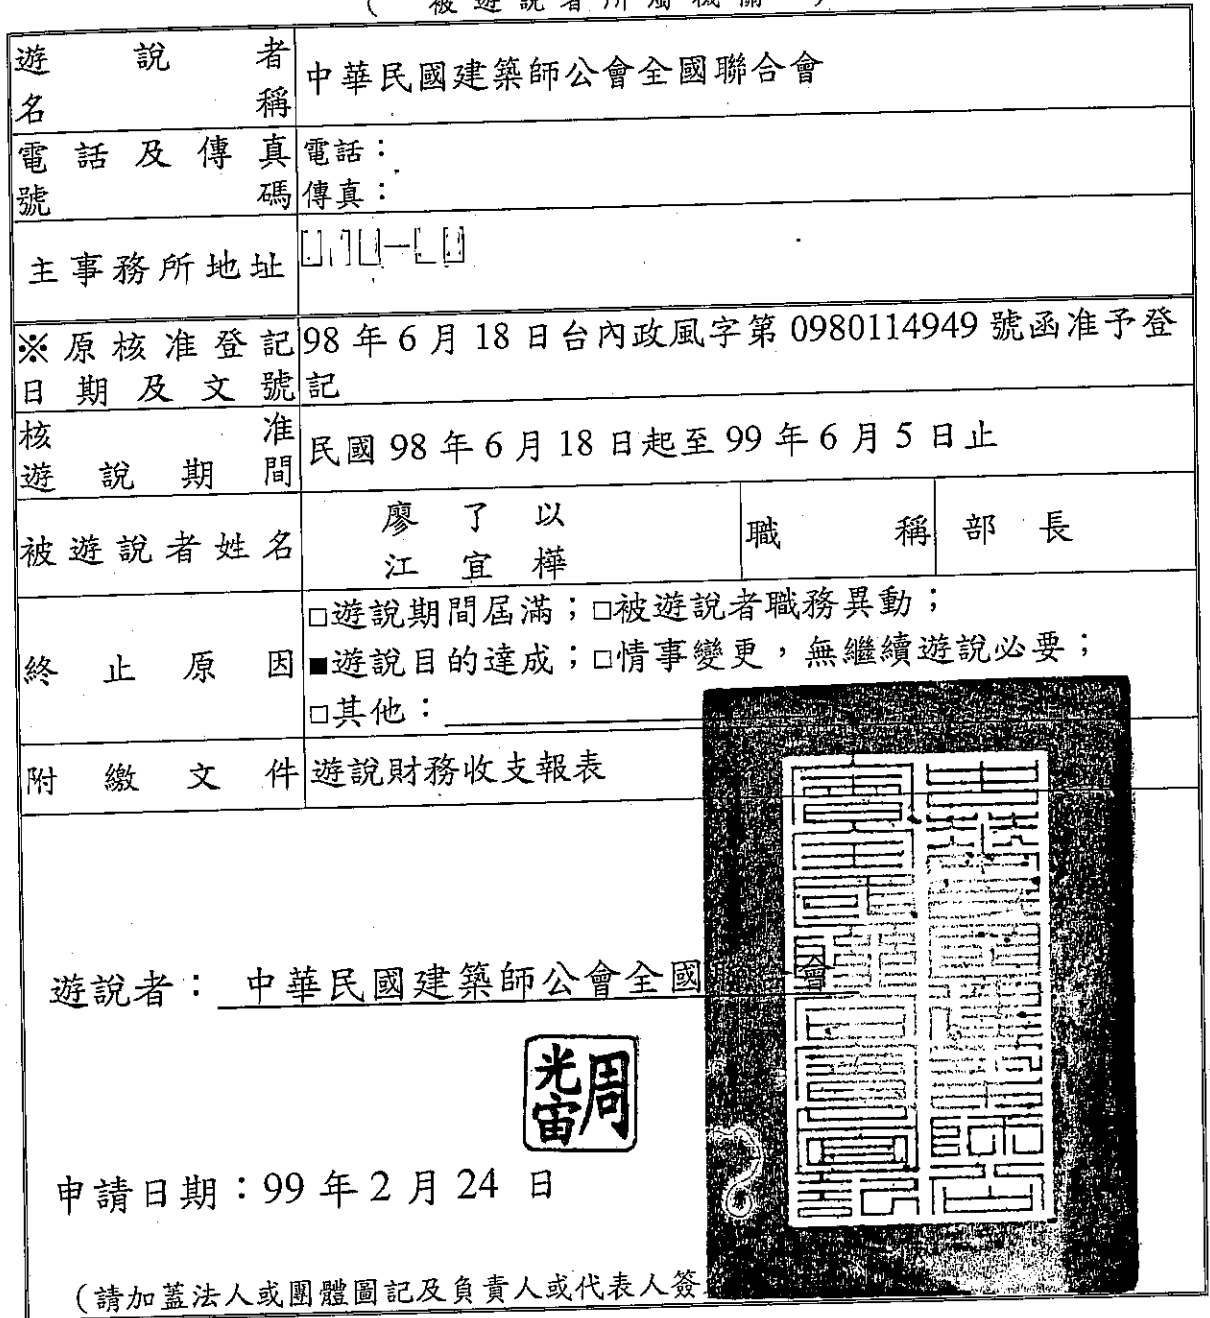 （被遊說者所屬機關）
遊說者
名稱
中華民國建築師公會全國聯合會
電話及傳真
號碼
電話：
傳真：
主事務所地址
※原核准登記
日期及文號
98 年 6 月 18 日台內政風字第 0980114949 號函准予登
記
核准
遊說期間
民國 98 年 6 月 18 日起至 99 年 6 月 5 日止
被遊說者姓名
廖了以
江宜樺
職稱
部長
終止原因
□遊說期間屆滿；□被遊說者職務異動；
■遊說目的達成；□情事變更，無繼續遊說必要；
□其他：
附繳文件
遊說財務收支報表
遊說者：中華民國建築師公會全國 會
周光宙
申請日期：99 年 2 月 24 日
（請加蓋法人或團體圖記及負責人或代表人簽